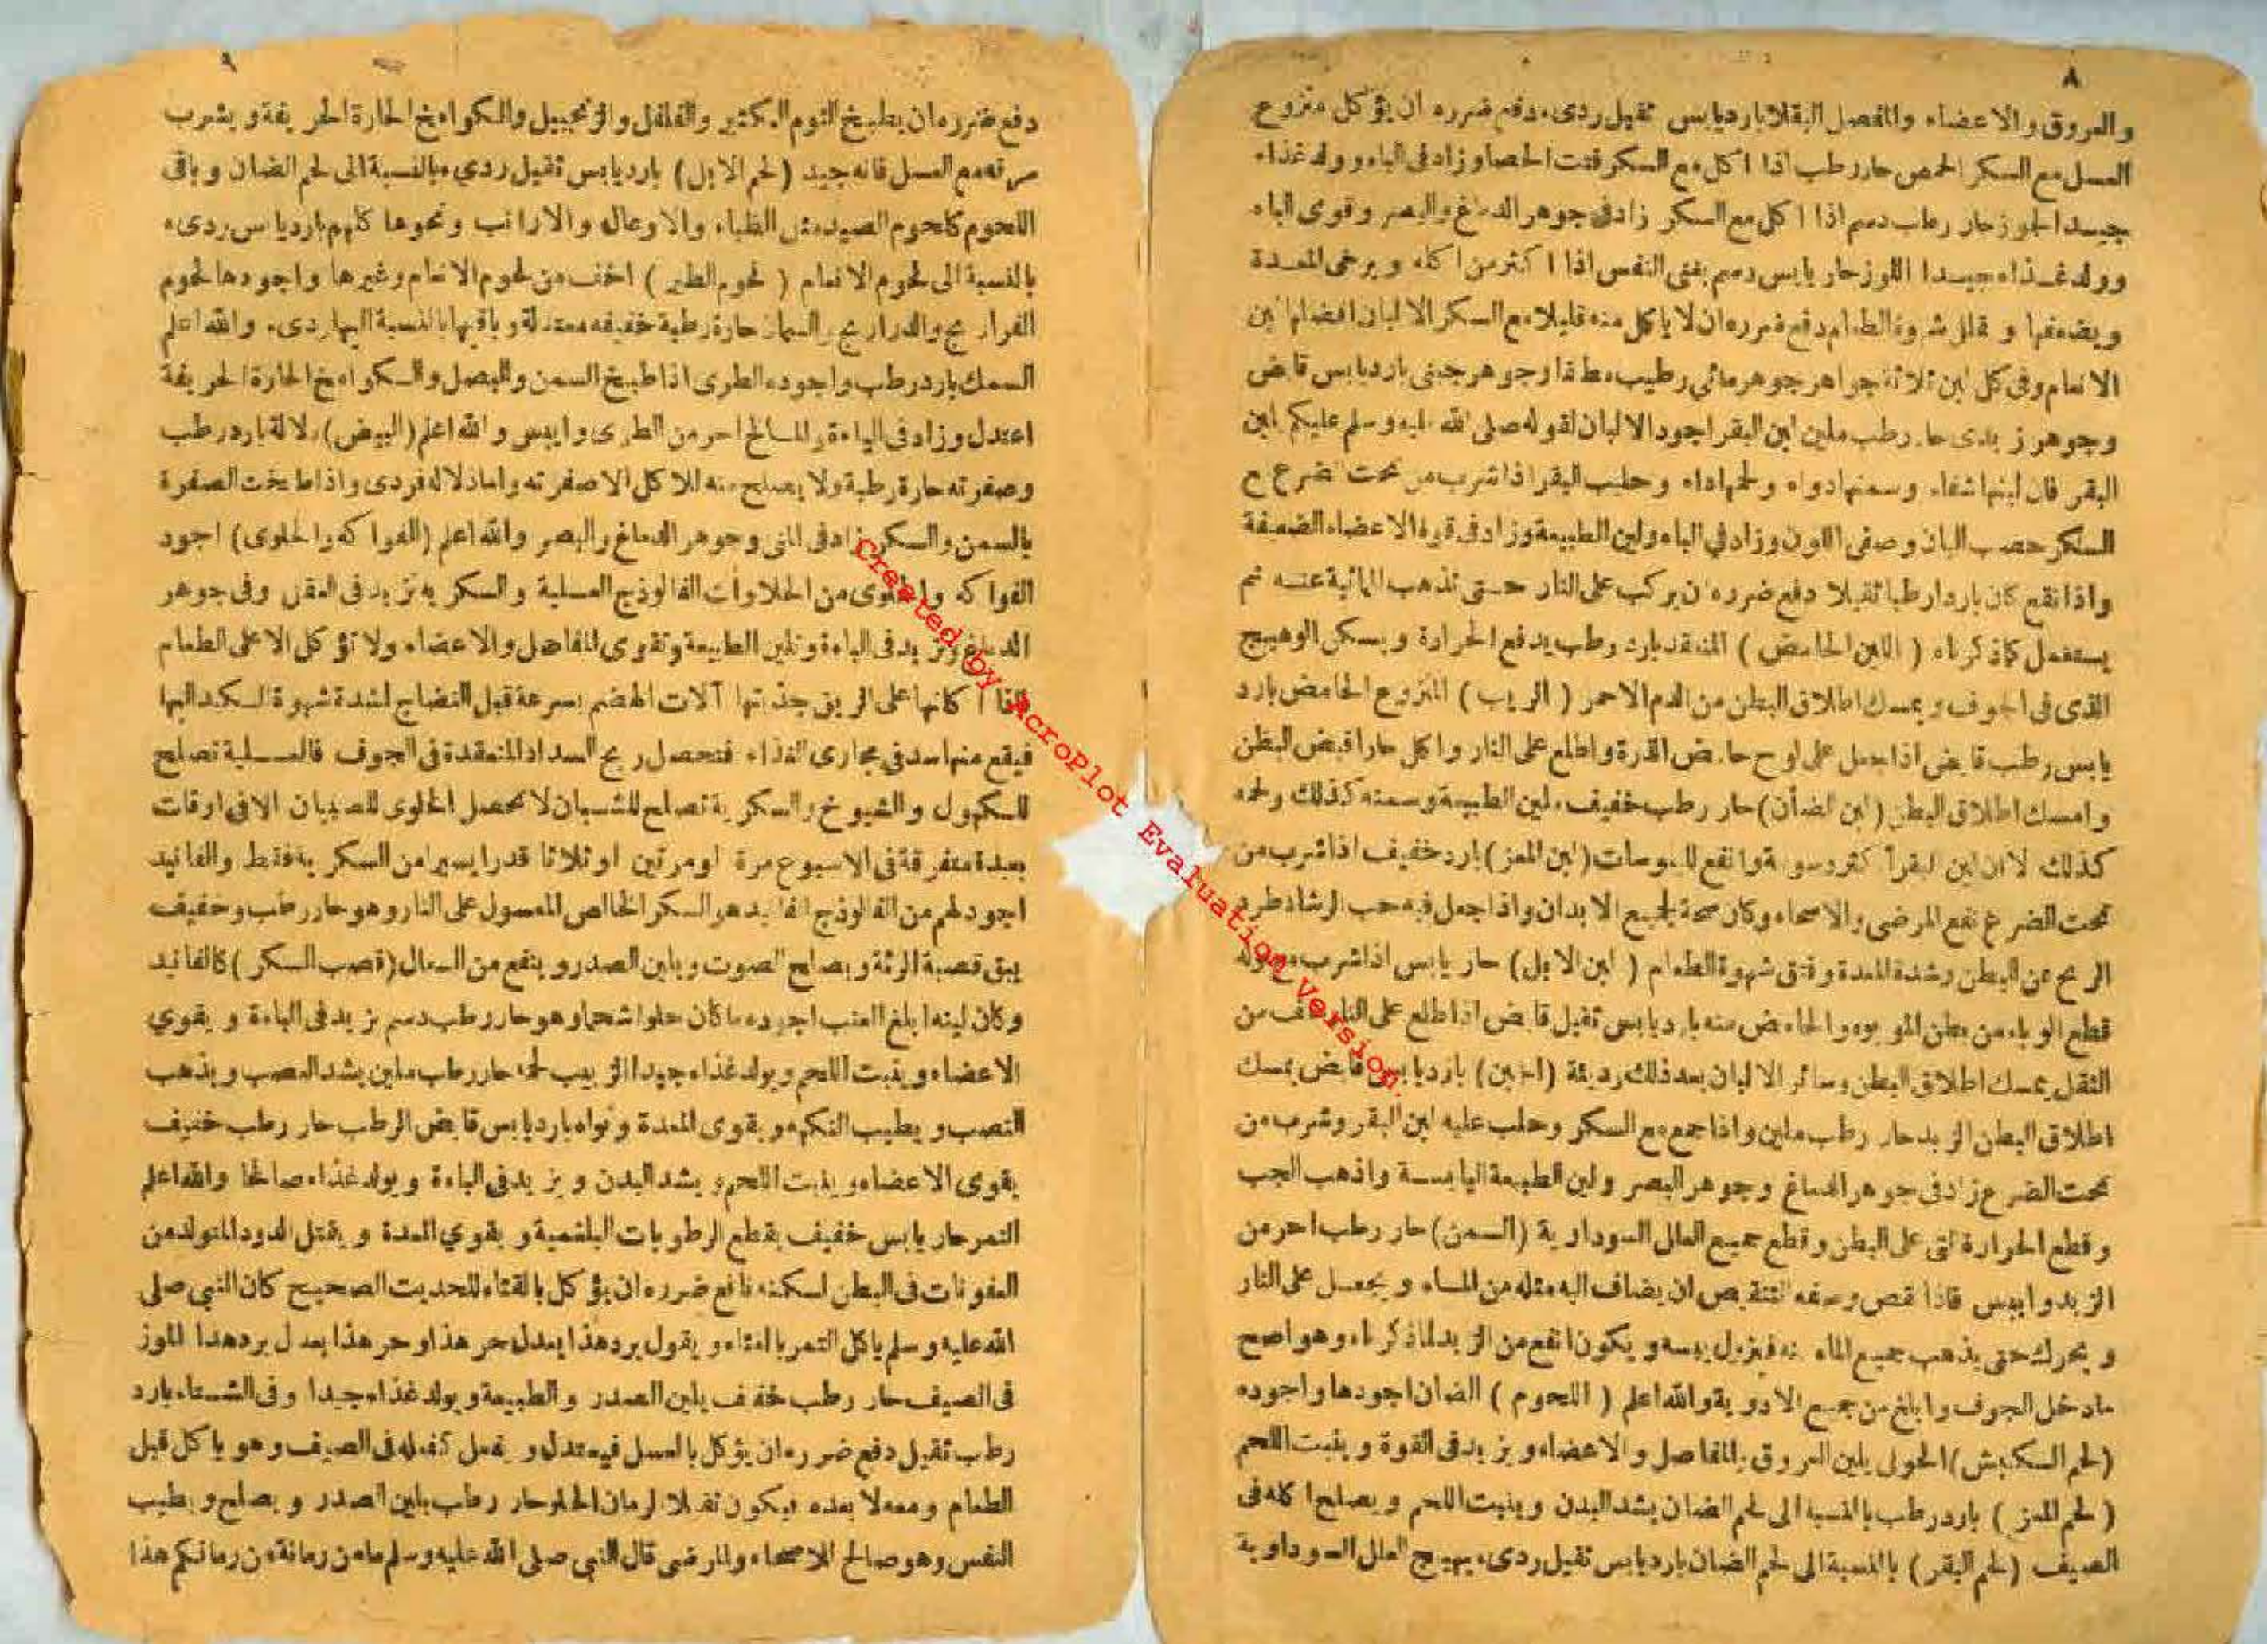 ٨
والعروق والاعضاء والمفصل البقلا بارد يابس ثقيل ردىء دفع ضرره ان يؤكل منزوع
العسل مع السكر الحمص حار رطب اذا اكل مع السكر فتت الحصا وزاد فى الباه وولد غذاء
جيدا الجوز حار رطب دسم اذا اكل مع السكر زاد فى جوهر الدماغ والبصر وقوى الباه
وولد غذاء جيدا اللوز حار يابس دسم يغثى النفس اذا اكثر من اكله ويرخى المعدة
ويضعفها و شهوة الطعام دفع ضرره ان لا ياكل منه قليلا مع السكر الالبان افضلها لبن
الانعام وفى كل لبن ثلاثة جواهر جوهر مائي رطب وجوهر جبنى بارد يابس قابض
وجوهر زبدى حار رطب ملين لبن البقر اجود الالبان لقوله صلى الله عليه وسلم عليكم لبن
البقر فان لبنها شفاء وسمنها دواء ولحمها داء وحليب البقر اذا شرب من تحت الضرع مع
السكر خصب البدن وصفى اللون وزاد في الباه ولين الطبيعة وزاد فى قوة الاعضاء الضعيفة
واذا نقع كان باردا رطبا ثقيلا دفع ضرره ان يركب على النار حتى تذهب المائية عنه ثم
يستعمل كما ذكرناه ( اللبن الحامض ) المنعقد بارد رطب يدفع الحرارة ويسكن الوهيج
الذى فى الجوف ويمسك اطلاق البطن من الدم الاحمر ( الريب ) المنزوع الحامض بارد
يابس رطب قابض اذا جعل على حامض واطلع على النار واكل حارا قبض البطن
وامسك اطلاق البطن (لبن الضأن) حار رطب خفيف ملين الطبيعة وسمنه كذلك ولحمه
كذلك لان لبن البقر أكثر دسومة وانفع لليبوسات (لبن المعز) بارد خفيف اذا شرب من
تحت الضرع نفع المرضى والاصحاء وكان صحة لجميع الابدان واذا جعل فيه حب الرشاد طرد
الريح عن البطن وشد المعدة وفتق شهوة الطعام ( لبن الابل) حار يابس اذا شرب مع بوله
قطع الوباء من بطن الموبوء والحامض منه بارد يابس ثقيل قابض اذا اطلع على النار خف من
الثقل يمسك اطلاق البطن وسائر الالبان بعد ذلك رديئة (الجبن) بارد يابس قابض يمسك
اطلاق البطن الزبد حار رطب ملين واذا جمع مع السكر وحلب عليه لبن البقر وشرب من
تحت الضرع زاد فى جوهر الدماغ وجوهر البصر ولين الطبيعة اليابسة واذهب الجب
وقطع الحرارة التى على البطن وقطع جميع العلل السوداوية (السمن) حار رطب احر من
الزبد وايبس فاذا ان يضاف اليه مثله من الماء ويجعل على النار
ويحرك حتى يذهب جميع الماء منه فيزيل يبسه ويكون انفع من الزبد لما ذكرناه وهو اصح
ما دخل الجوف وابلغ من جميع الادوية والله اعلم ( اللحوم ) الضان اجودها واجوده
(لحم الكبش) الحولى يلين العروق والمفاصل والاعضاء ويزيد فى القوة وينبت اللحم
( لحم المعز ) بارد رطب بالنسبة الى لحم الضان يشد البدن وينبت اللحم ويصلح اكله فى
الصيف (لحم البقر) بالنسبة الى لحم الضان بارد يابس ثقيل ردىء يهيج العلل السوداوية
٩
دفع ضرره ان يطبخ بالثوم الكثير والفلفل والزنجبيل والكوامخ الحارة الحريفة ويشرب
مرقه مع العسل فانه جيد (لحم الابل) بارد يابس ثقيل رديء بالنسبة الى لحم الضان وباقى
اللحوم كلحوم الصيد مثل الظباء والاوعال والارانب ونحوها كلهم بارد يابس ردىء
بالنسبة الى لحوم الانعام ( لحوم الطير ) اخف من لحوم الانعام وغيرها واجودها لحوم
الفراريج والدراريج والسمان حارة رطبة خفيفه معتدلة وباقيها بالنسبة اليها ردىء والله اعلم
السمك بارد رطب واجوده الطرى اذا طبخ السمن والبصل والكوامخ الحارة الحريفة
اعتدل وزاد فى الباءة والمالح احر من الطرى وايبس والله اعلم (البيض) زلاله بارد رطب
وصفرته حارة رطبة ولا يصلح منه للاكل الا صفرته واما زلاله فردى واذا طبخت الصفرة
بالسمن والسكر زاد فى المنى وجوهر الدماغ والبصر والله اعلم (الفواكه والحلوى) اجود
الفواكه والحلوى من الحلاوات الفالوذج العسلية والسكريه تزيد فى العقل وفى جوهر
الدماغ وتزيد فى الباءة وتلين الطبيعة وتقوى المفاصل والاعضاء ولا تؤكل الا على الطعام
اكلها على الريق جذبتها آلات الهضم بسرعة قبل النضاج لشدة شهوة الكبد اليها
فيقع منها سد في مجارى الغذاء فتحصل ريح السداد المنعقدة فى الجوف فالعسلية تصلح
للكهول والشيوخ والسكرية تصلح للشبان لا تحصل الحلوى للصبيان الا فى اوقات
بعيدة متفرقة فى الاسبوع مرة او مرتين او ثلاثا قدرا يسيرا من السكرية فقط والفانيد
اجود لهم من الفالوذج الفانيد هو السكر الخالص المعسول على النار وهو حار رطب وخفيف
يبق قصبة الرئة ويصلح الصوت ويلين الصدر وينفع من السعال (قصب السكر) كالفانيد
وكان لينه ابلغ العنب اجوده ما كان حلوا شحما وهو حار رطب دسم يزيد فى الباءة ويقوي
الاعضاء وينبت اللحم ويولد غذاء جيدا الزبيب لحمه حار رطب ملين يشد العصب ويذهب
النصب ويطيب النكهه ويقوى المعدة ونواه بارد يابس قابض الرطب حار رطب خفيف
يقوى الاعضاء وينبت اللحم ويشد البدن ويزيد فى الباءة ويولد غذاء صالحا والله اعلم
التمر حار يابس خفيف يقطع الرطوبات البلغمية ويقوي المعدة ويقتل الدود المتولد من
العفونات فى البطن لسكنه دافع ضرره ان يؤكل بالقثاء للحديث الصحيح كان النبي صلى
الله عليه وسلم ياكل التمر بالقثاء ويقول برد هذا يعدل حر هذا وحر هذا يعدل برد هذا الموز
فى الصيف حار رطب خفيف يلين الصدر والطبيعة ويولد غذاء جيدا وفى الشتاء بارد
رطب ثقيل دفع ضرره ان يؤكل بالعسل فيعتدل ويفعل كفعله فى الصيف وهو ياكل قبل
الطعام ومعه لا بعده فيكون ثقلا الرمان الحلو حار رطب يلين الصدر ويصلح ويطيب
النفس وهو صالح للاصحاء والمرضى قال النبي صلى الله عليه وسلم ما من رمانة من رمانكم هذا
Created by AcroPlot Evaluation Version.